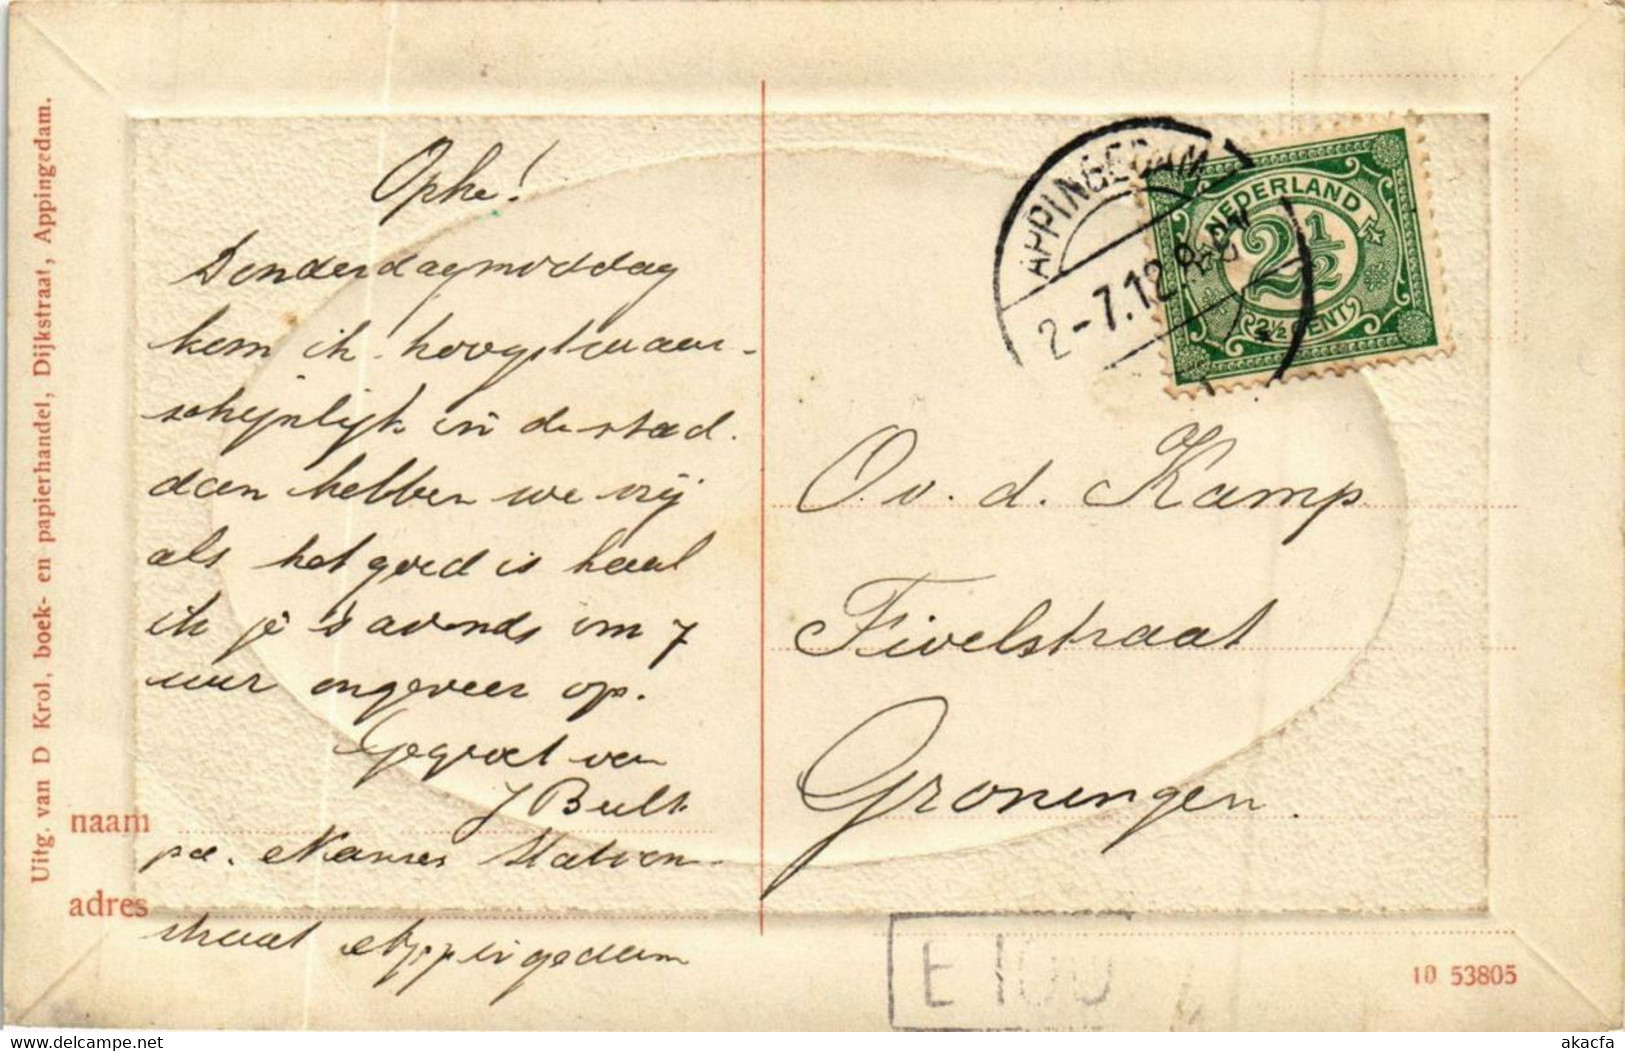 Uitg. van D Krol, boek- en papierhandel, Dijkstraat, Appingedam.
Ophe!
Donderdagmiddag
kom ik hoogstwaar-
schijnlijk in de stad.
dan hebben we vrij
als het goed is haal
ik je 's avonds om 7
uur ongeveer op.
Gegroet van
J Bult
naam
pa. Station-
adres
straat Appingedam
APPINGEDAM
2-7.12.
NEDERLAND
2½
2½ CENT
O. v. d. Kamp
Fivelstraat
Groningen.
E 100
10 53805
akacfa